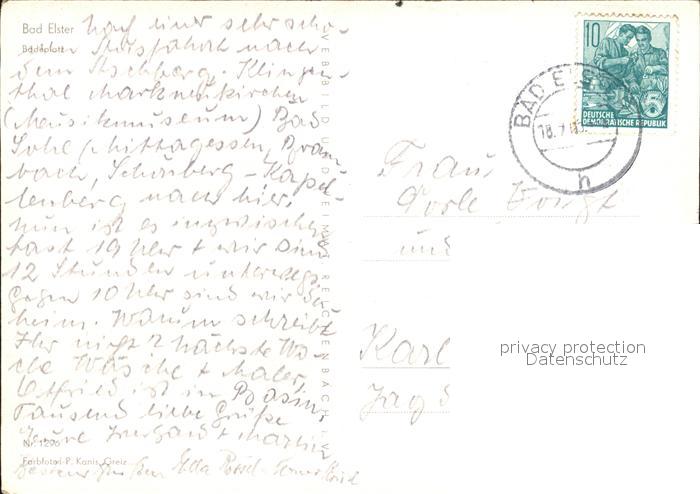 Bad Elster
Badeplatz
Nach einer sehr schö-
nen Autofahrt nach
dem Aschberg, Klingen-
thal Markneukirchen
(Musikmuseum) Bad
Sohl (Mittagessen, Bram-
bach, Schönberg - Kapel-
lenberg nach hier.
Nun ist es inzwischen
fast 19 Uhr + wir sind
12 Stunden unterwegs
gegen 10 Uhr sind wir da-
heim. Warum schreibt
Ihr nicht? Nächste Wo-
che Wäsche + Maler,
Ottfried ist in
Tausend liebe Grüße
Eure + 
Nr. 1296
Farbfoto: P. Kanis, Greiz
VEB BILD UND HEIMAT REICHENBACH I. V.
10
DEUTSCHE
DEMOKRATISCHE REPUBLIK
BAD ELSTER
18.7.
h
Frau
Voigt
und
Karl
privacy protection
Datenschutz